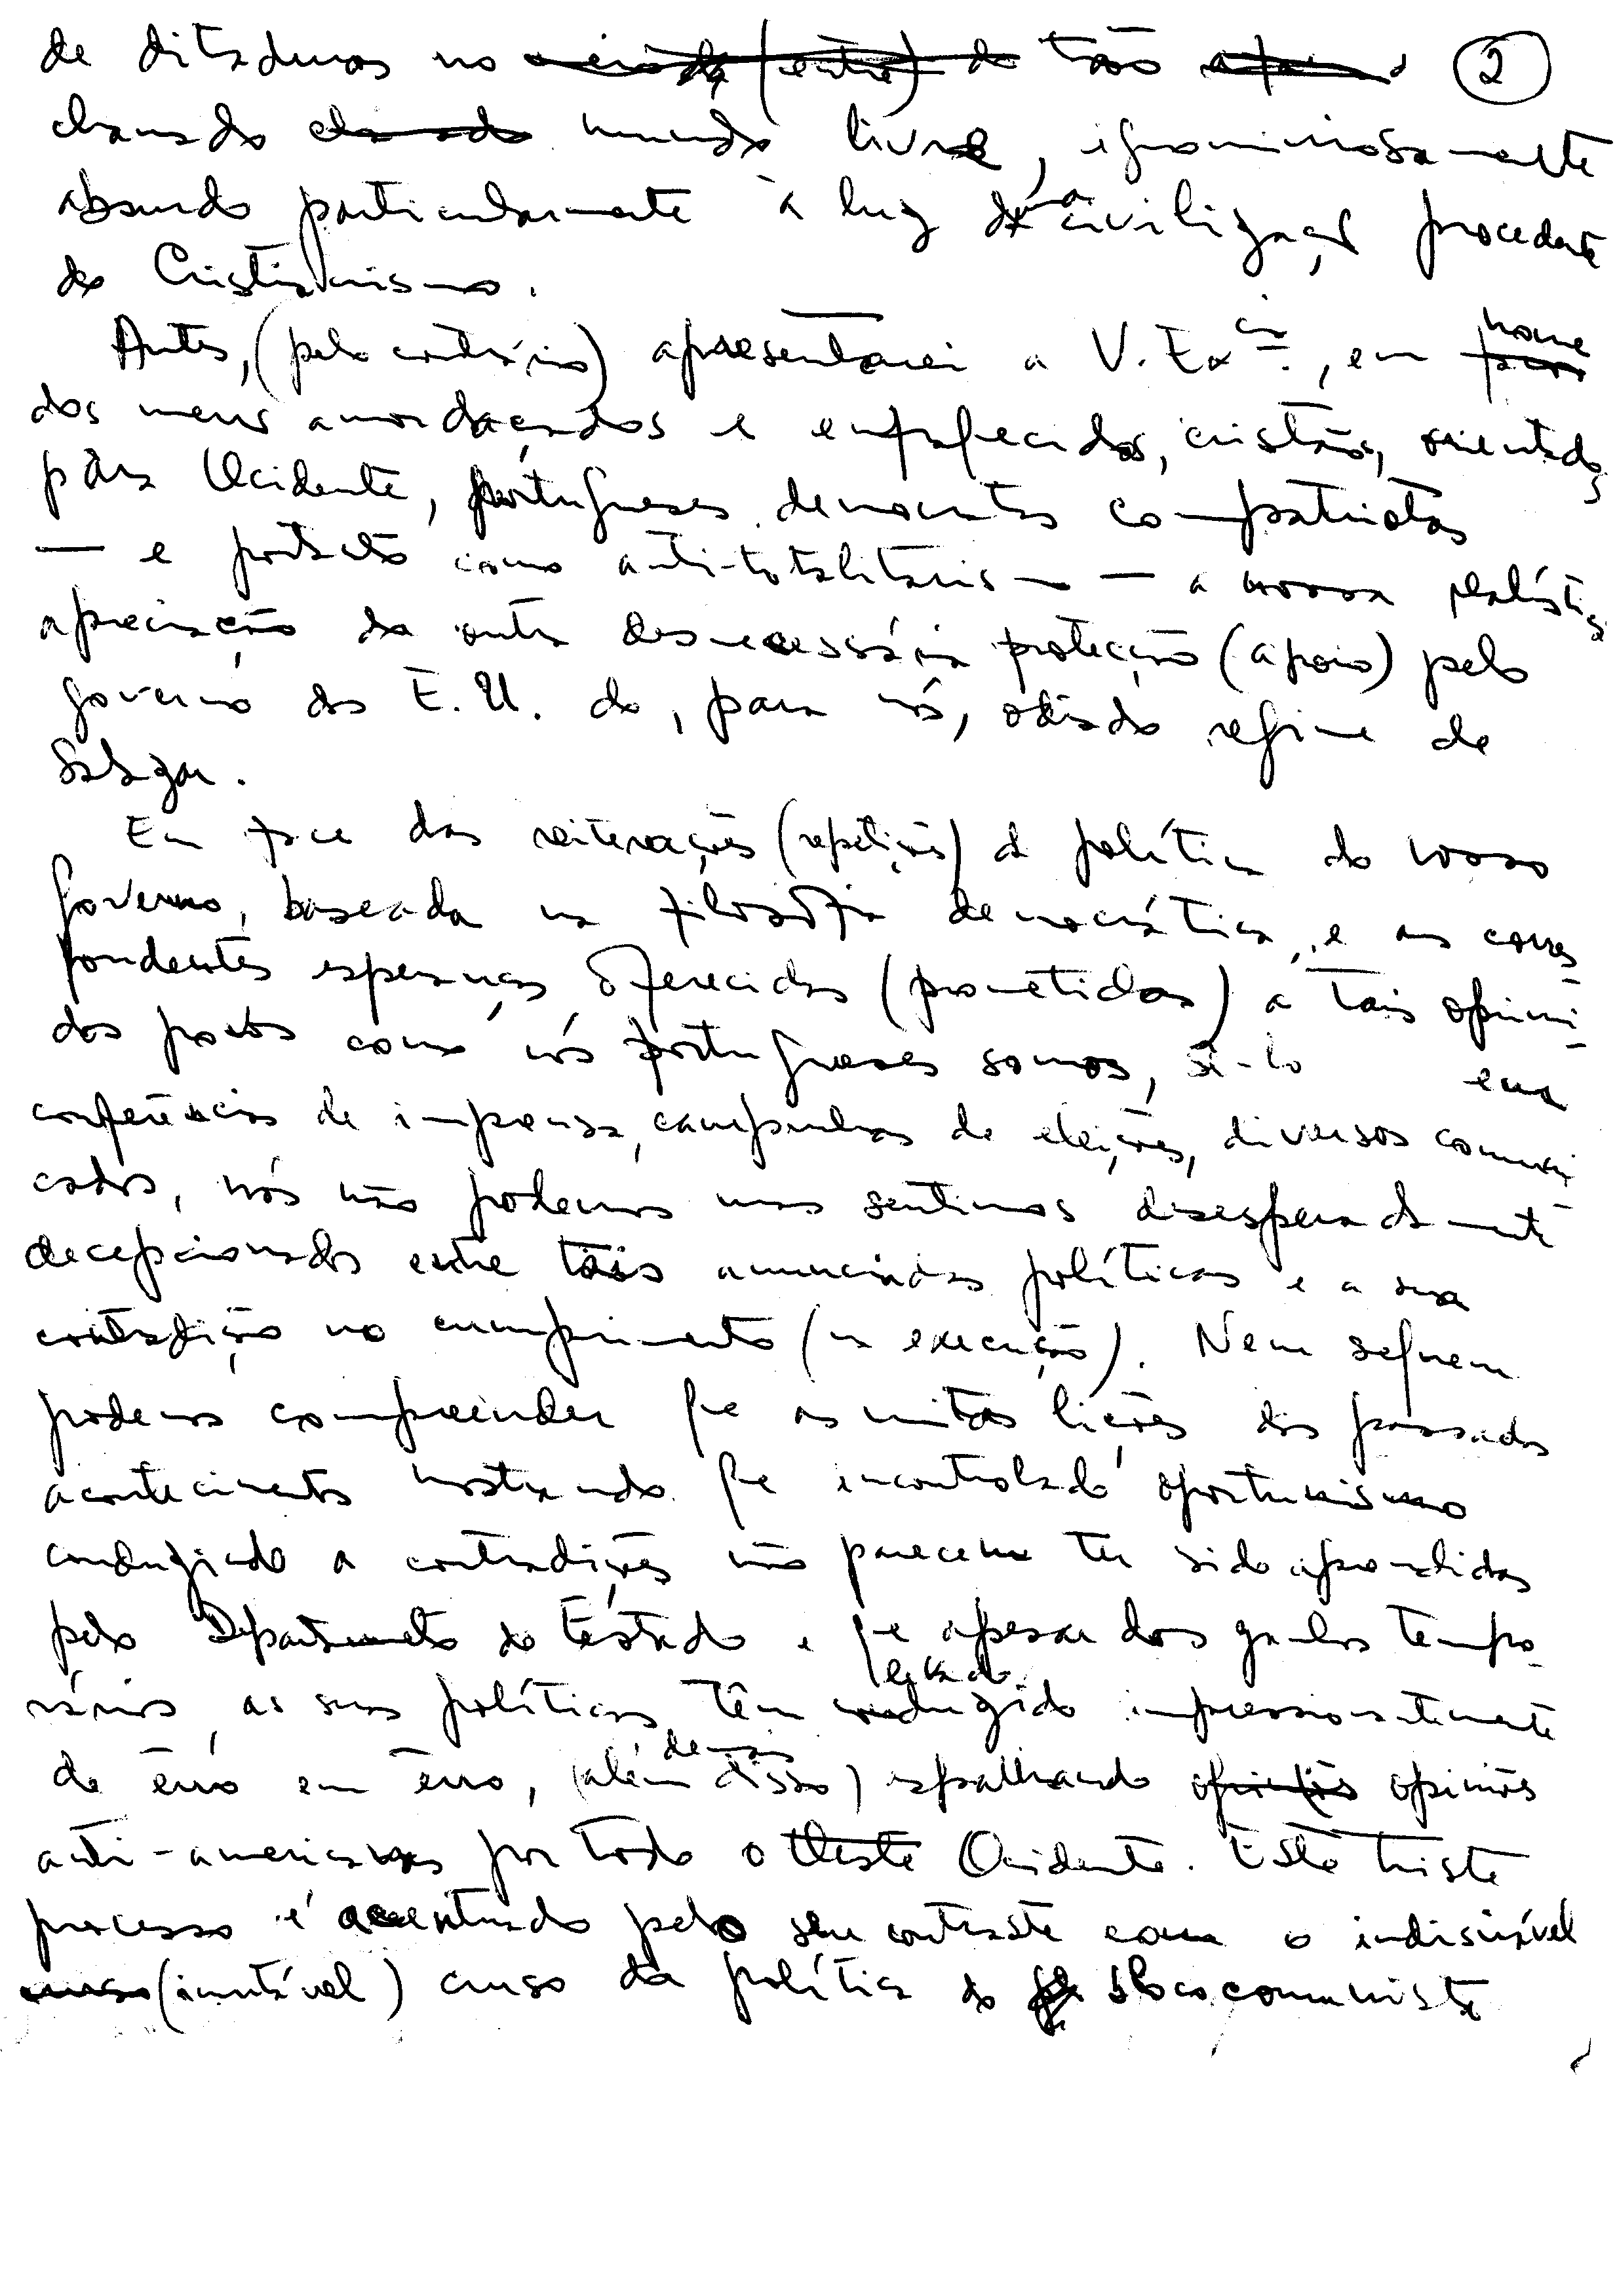 de ditaduras no meio da (entre) do tão 2
chamado chamado mundo livre, ignominiosamente
absurdo particularmente à luz da civilização procedente
do Cristianismo.
Antes, (pelo contrário) apresentarei a V. Exciª., em nome
dos meus amordaçados e enfraquecidos, cristãos, orientados
para Ocidente, portugueses democratas compatriotas
— e portanto como anti-totalitarismo — a nossa
apreciação da outra desnecessária protecção (apoio) pelo
govêrno dos E.U. do, para nós, odiado regime de
Salazar.
Em face das reiterações (repetições) da política do vosso
govêrno, baseada na filosofia democrática, e as corres-
pondentes esperanças oferecidas (prometidas) a tais oprimi-
dos povos como nós portugueses somos, em
conferências de imprensa, campanhas de eleições, diversos comuni-
cados, nós não podemos mas sentimos desesperadamente
decepcionados entre tais anunciadas políticas e a sua
contradição no cumprimento (na execução). Nem sequer
podemos compreender que as muitas lições dos passados
acontecimentos mostrando que incontrolado oportunismo
conduzindo a contradições não parecem ter sido aprendidas
pelo Departamento do Estado e que apesar dos ganhos tempo-
levado
rários, as suas políticas têm conduzido impressionantemente
demais
de êrro em êrro, (além disso) espalhando opiniões opiniões
anti-americanas por todo o Oeste Ocidente. Este triste
processo é acentuado pelo seu contraste com o
curso (imutável) curso da política do bloco comunista